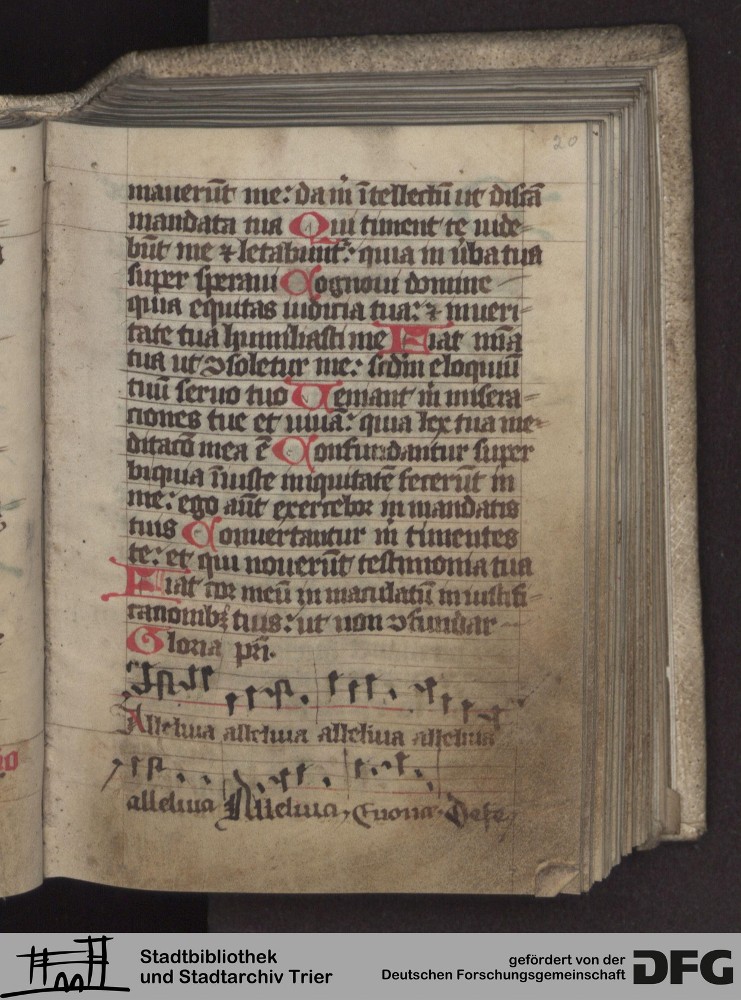 20
mauerūt me: da m̄ ītellectū ut discā
mandata tua Qui timent te uide-
būt me ⁊ letabunt᷑: quia in ūba tua
super speraui Cognoui domine
quia equitas iudicia tua: ⁊ in ueri-
tate tua humiliasti me Fiat mīa
tua ut ↄsoletur me: scdm eloquiū
tuū seruo tuo Ueniant m̄ misera-
ciones tue et uiuā: quia lex tua me-
ditacō mea ē Confundantur super
bi quia īiuste iniquitatē fecerūt in
me: ego aūt exercebor in mandatis
tuis Conuertantur m̄ timentes
te: et qui nouerūt testimonia tua
Fiat cor meū inmaculatū in iustifi-
canonibꝫ tuis: ut non ↄfundar
Gloria pr̄i.
Alleluia alleluia alleluia alleluia
alleluia Alleluia, Euouae.
Stadtbibliothek
und Stadtarchiv Trier
gefördert von der
Deutschen Forschungsgemeinschaft
DFG